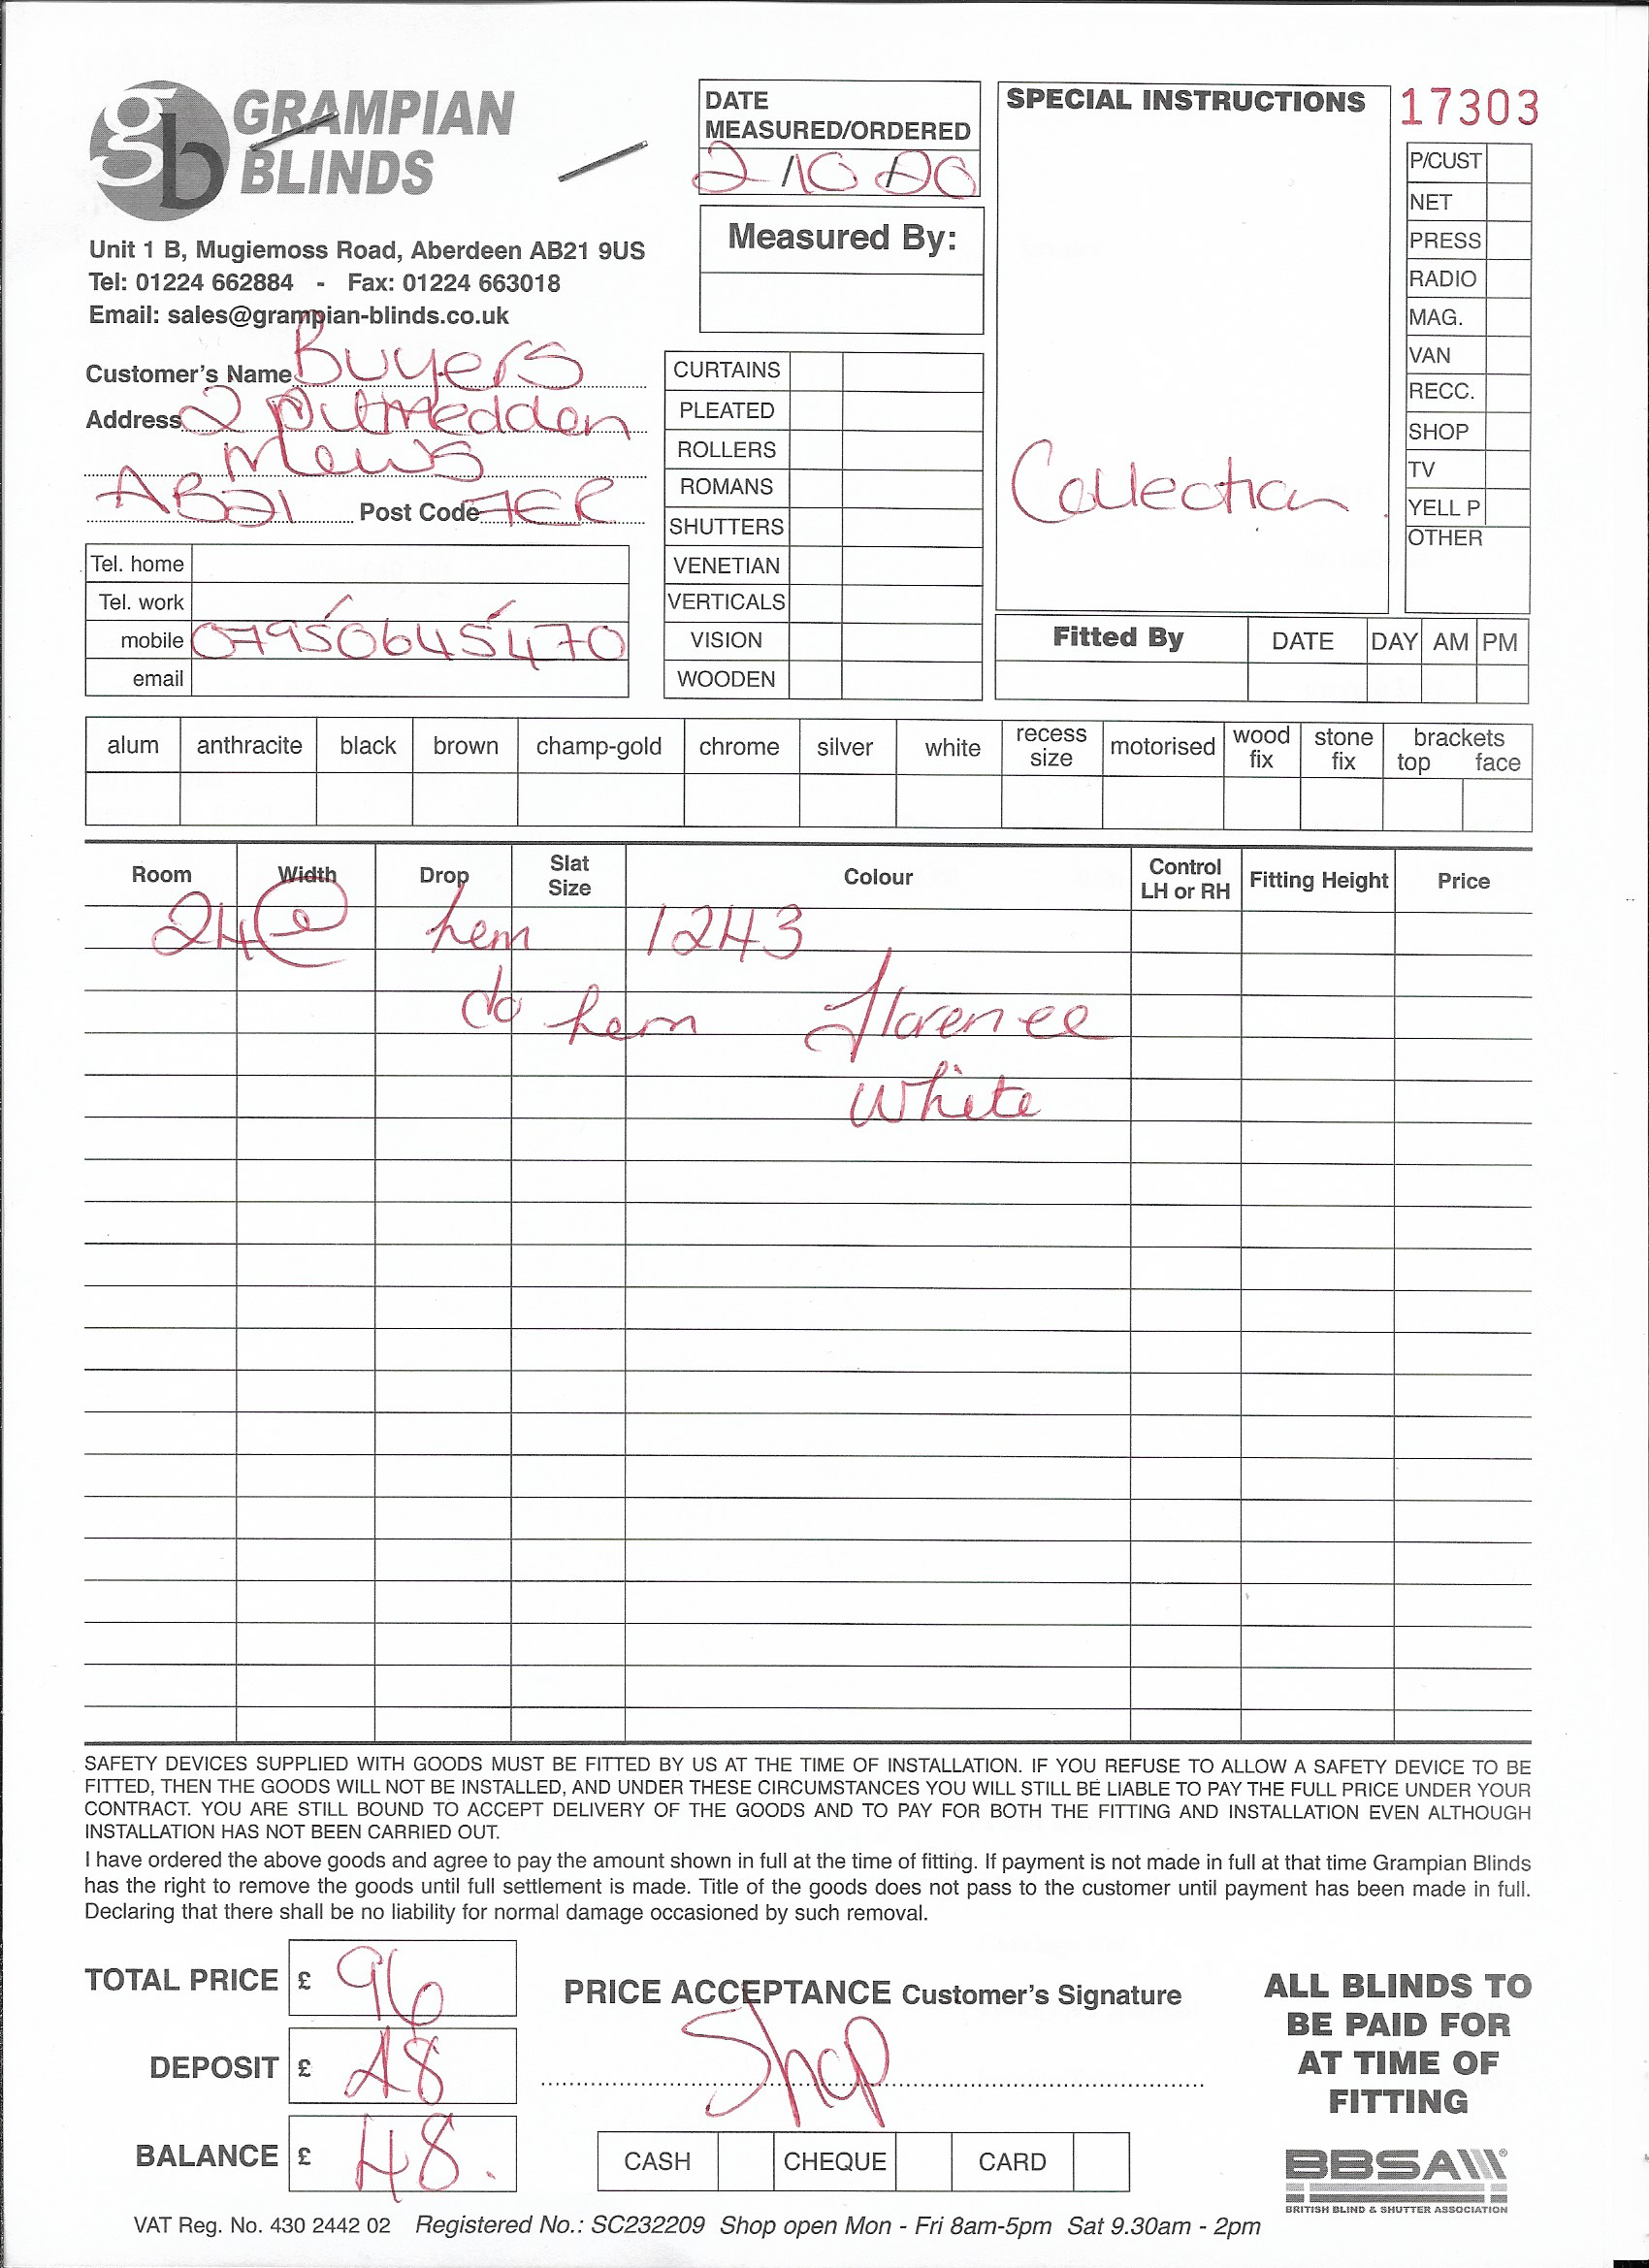 gb GRAMPIAN BLINDS
Unit 1 B, Mugiemoss Road, Aberdeen AB21 9US
Tel: 01224 662884 - Fax: 01224 663018
Email: sales@grampian-blinds.co.uk
Customer's Name Buyers
Address 2 Pitmedden
Mews
AB21 Post Code 7ER
Tel. home
Tel. work
mobile 07950645470
email
DATE
MEASURED/ORDERED
2/10/20
Measured By:
CURTAINS
PLEATED
ROLLERS
ROMANS
SHUTTERS
VENETIAN
VERTICALS
VISION
WOODEN
SPECIAL INSTRUCTIONS
Collection
17303
P/CUST
NET
PRESS
RADIO
MAG.
VAN
RECC.
SHOP
TV
YELL P
OTHER
Fitted By DATE DAY AM PM
alum anthracite black brown champ-gold chrome silver white recess size motorised wood fix stone fix brackets top face
Room Width Drop Slat Size Colour Control LH or RH Fitting Height Price
24 @ hem 1243
do hem Florence
White
SAFETY DEVICES SUPPLIED WITH GOODS MUST BE FITTED BY US AT THE TIME OF INSTALLATION. IF YOU REFUSE TO ALLOW A SAFETY DEVICE TO BE
FITTED, THEN THE GOODS WILL NOT BE INSTALLED, AND UNDER THESE CIRCUMSTANCES YOU WILL STILL BE LIABLE TO PAY THE FULL PRICE UNDER YOUR
CONTRACT. YOU ARE STILL BOUND TO ACCEPT DELIVERY OF THE GOODS AND TO PAY FOR BOTH THE FITTING AND INSTALLATION EVEN ALTHOUGH
INSTALLATION HAS NOT BEEN CARRIED OUT.
I have ordered the above goods and agree to pay the amount shown in full at the time of fitting. If payment is not made in full at that time Grampian Blinds
has the right to remove the goods until full settlement is made. Title of the goods does not pass to the customer until payment has been made in full.
Declaring that there shall be no liability for normal damage occasioned by such removal.
TOTAL PRICE £ 96
DEPOSIT £ 48
BALANCE £ 48.
PRICE ACCEPTANCE Customer's Signature
Shop
CASH CHEQUE CARD
ALL BLINDS TO
BE PAID FOR
AT TIME OF
FITTING
BBSA
BRITISH BLIND & SHUTTER ASSOCIATION
VAT Reg. No. 430 2442 02 Registered No.: SC232209 Shop open Mon - Fri 8am-5pm Sat 9.30am - 2pm